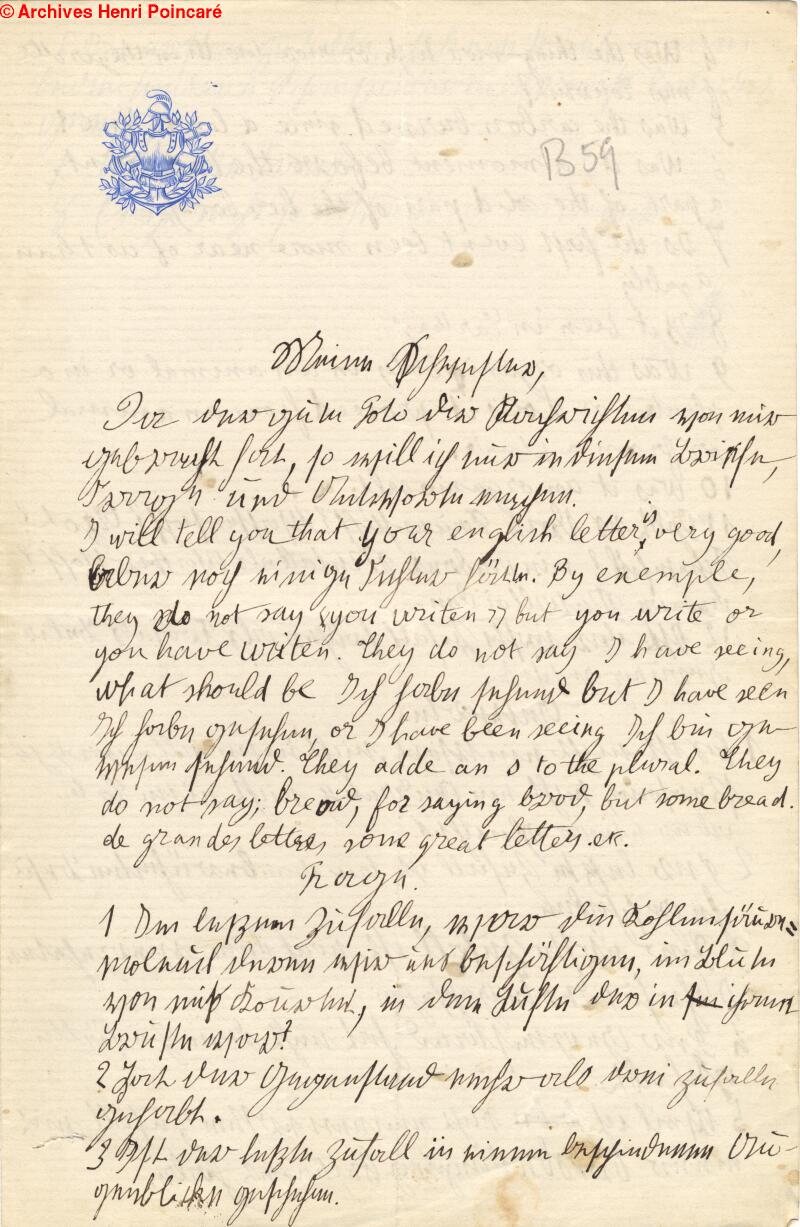 © Archives Henri Poincaré
B 59
Meine Schwester,
Da der gute Gott die Nachrichten von mir
gebracht hat, so will ich nur in diesem Briefe,
Fragen und Antworten machen.
I will tell you that your english letter is very good,
aber noch einige Fehler hätte. By exemple,
they do not say "you writen" but you write or
you have writen. They do not say I have seeing,
what should be Ich habe sehend but I have seen
Ich habe gesehen, or I have been seeing Ich bin ge-
wesen sehend. They adde an s to the plural. They
do not say; bread, for saying brod, but some bread.
de grandes lettres some great letters. etc.
Frage.
1 Im letzten Zufalle, war die Kohlensäure=
molecul deren wir uns beschäftigen, im Blute
von, in der Lufte der in ihrem
Bruste war?
2 Hat der Gegenstand mehr als drei zufalle
gehabt.
3 Ist der letzte Zufall in einem beschiedenen Au-
genblicke geschehen.